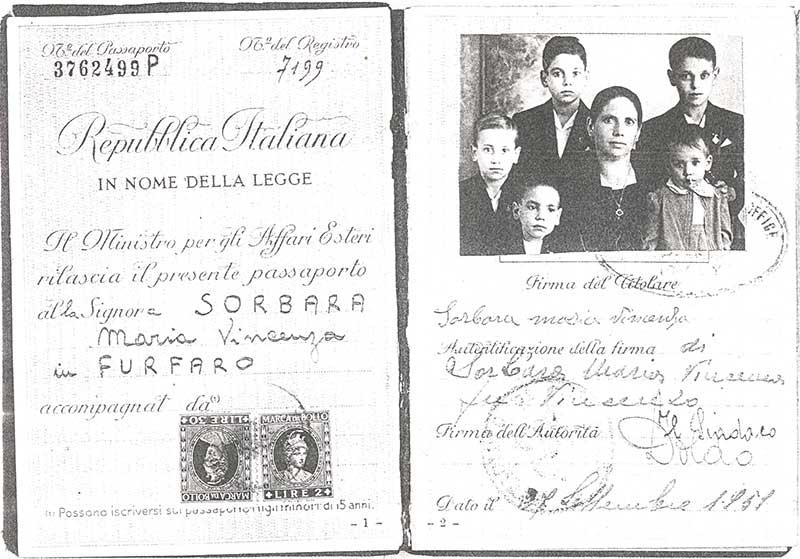 N.º del Passaporto
3762499 P
N.º del Registro
7199
Repubblica Italiana
IN NOME DELLA LEGGE
Il Ministro per gli Affari Esteri
rilascia il presente passaporto
alla Signora SORBARA
Maria Vincenza
in FURFARO
accompagnat da(1)
MARCA DA BOLLO
LIRE 50
MARCA DA BOLLO
LIRE 2
(1) Possono iscriversi sul passaporto i figli minori di 15 anni.
- 1 -
Firma del Titolare
Sorbara Maria Vincenza
Autentificazione della firma di
Sorbara Maria Vincenza
fu Vincenzo
Firma dell'Autorità Il Sindaco
Dato il 27 Settembre 1951
- 2 -